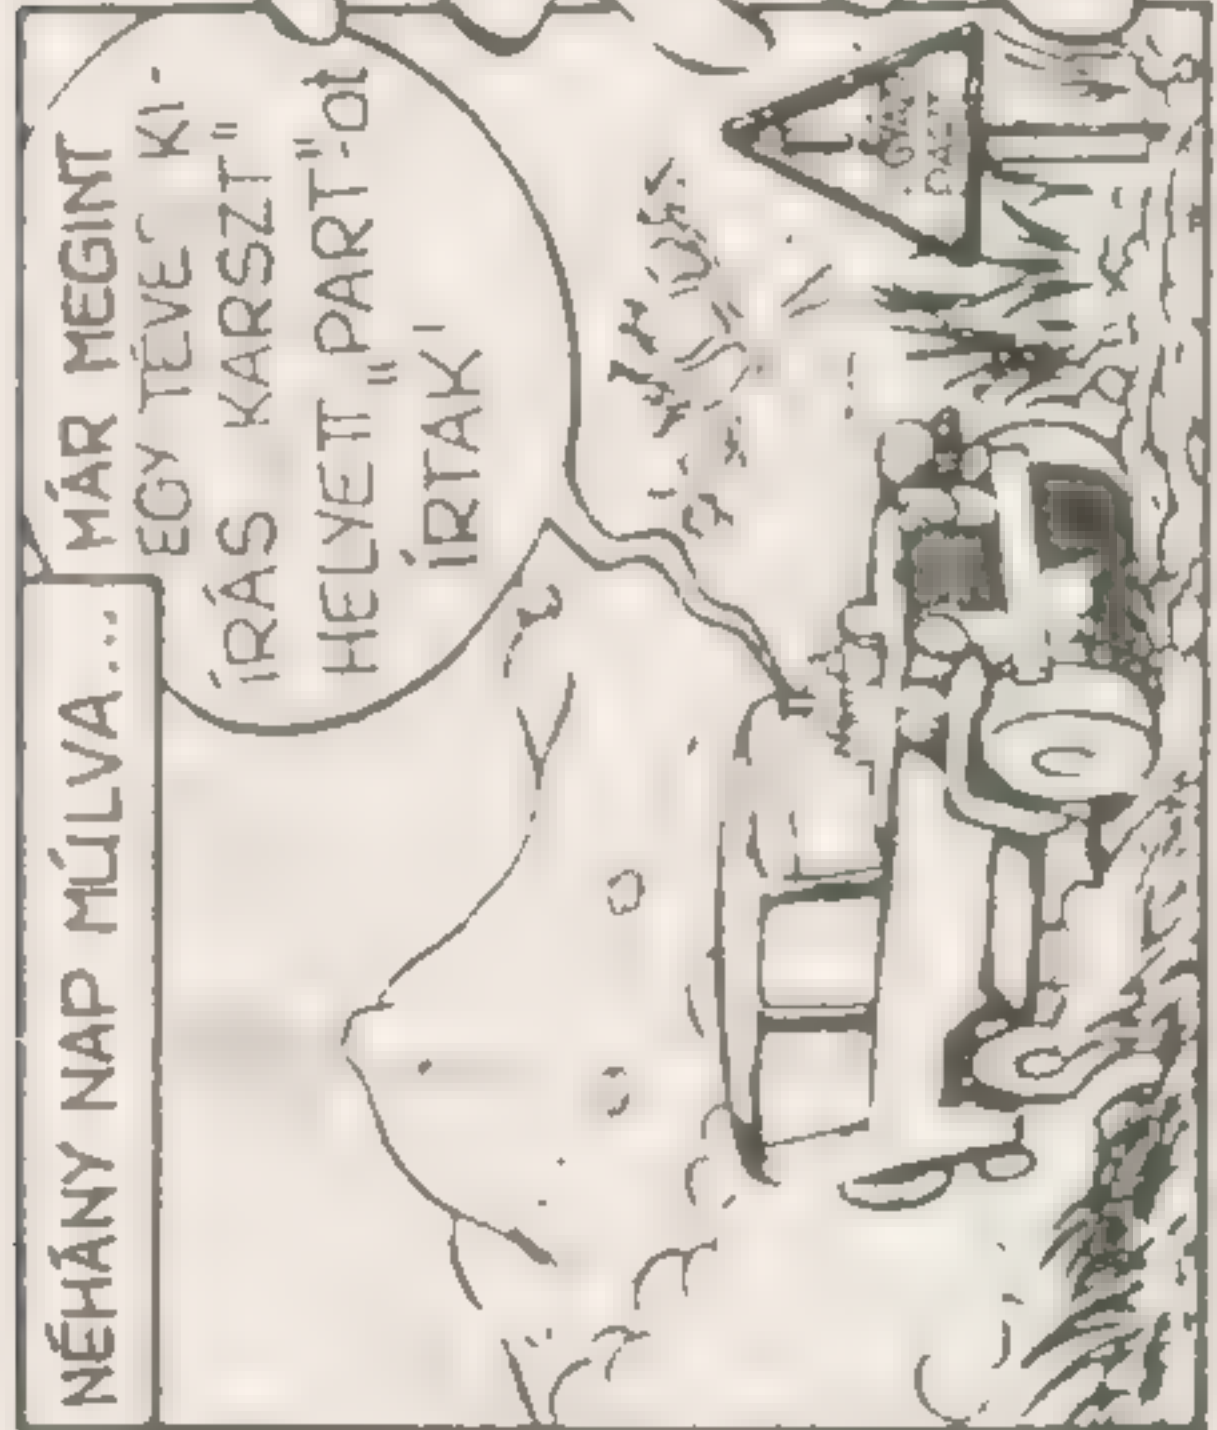 NÉHÁNY NAP MÚLVA...
MÁR MEGINT
EGY TÉVE KI-
ÍRÁS KARSZT"
HELYETT „PART"-ot
ÍRTAK!